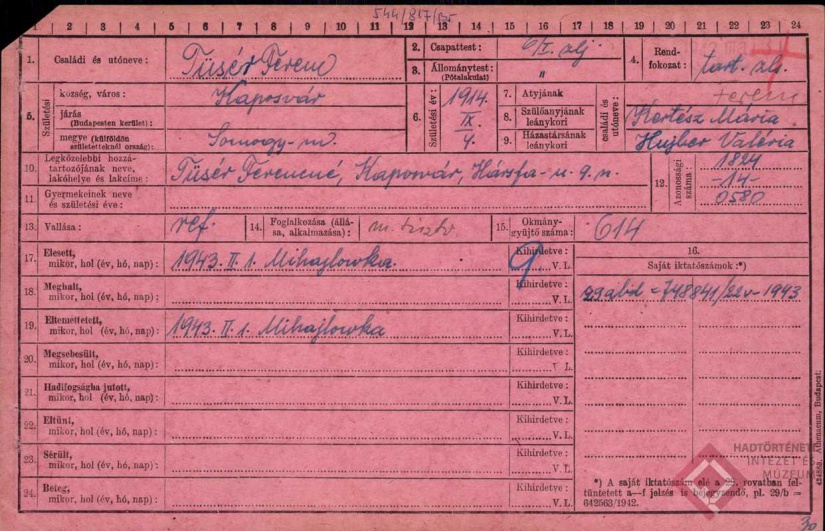 544/817/35
1 2 3 4 5 6 7 8 9 10 11 12 13 14 15 16 17 18 19 20 21 22 23 24
1. Családi és utóneve: Tüsér Ferenc
2. Csapattest: 6/I. zlj.
3. Állománytest: (Pótalakulat) "
4. Rendfokozat: tart. zls.
5. Születési
község, város: Kaposvár
járás (Budapesten kerület):
megye (külföldön születetteknél ország): Somogy-m.
6. Születési év: 1914. IX. 4.
7. Atyjának Ferenc
8. Szülőanyjának leánykori Kertész Mária
9. Házastársának leánykori Hujber Valéria
családi és utóneve:
10. Legközelebbi hozzátartozójának neve, lakóhelye és lakcíme: Tüsér Ferencné, Kaposvár, Hársfa-u. 9. n.
11. Gyermekeinek neve és születési éve:
12. Azonossági száma: 1824 -14- 0580
13. Vallása: ref.
14. Foglalkozása (állása, alkalmazása): m. tisztv.
15. Okmánygyűjtő száma: 614
16. Saját iktatószámok:*)
29.a.bid = 748841/22v-1943
17. Elesett, mikor, hol (év, hó, nap): 1943. II. 1. Mihajlowka. Kihirdetve: V. L.
18. Meghalt, mikor, hol (év, hó, nap): Kihirdetve: V. L.
19. Eltemettetett, mikor, hol (év, hó, nap): 1943. II. 1. Mihajlowka Kihirdetve: V. L.
20. Megsebesült, mikor, hol (év, hó, nap): Kihirdetve: V. L.
21. Hadifogságba jutott, mikor, hol (év, hó, nap): Kihirdetve: V. L.
22. Eltünt, mikor, hol (év, hó, nap): Kihirdetve: V. L.
23. Sérült, mikor, hol (év, hó, nap): Kihirdetve: V. L.
24. Beteg, mikor, hol (év, hó, nap): Kihirdetve: V. L.
*) A saját iktatószám elé a 29. rovatban feltüntetett a—f jelzés is bejegyzendő, pl. 29/b = 642563/1942.
HADTÖRTÉNETI
INTÉZET ÉS
MÚZEUM
Athenaeum, Budapest